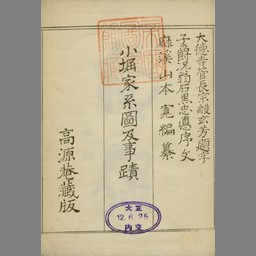 大徳寺管長宗般玄芳題字
子爵況翁石黒忠悳序文
麻溪山本寛編纂
小堀家系圖及事蹟
高源菴藏版
大正
12.6.25
内交